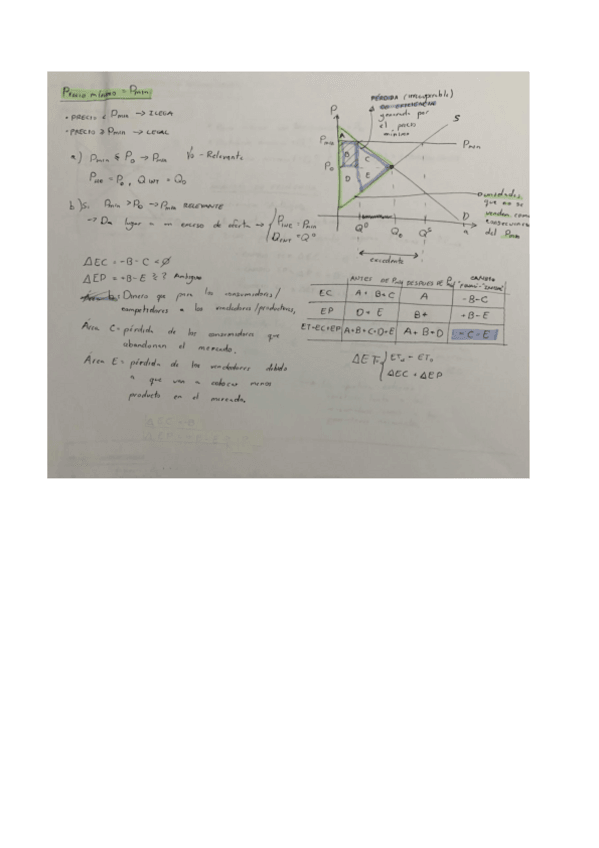 PRECIO MÍNIMO = Pmin
• PRECIO < Pmin → ILEGAL
• PRECIO ≥ Pmin → LEGAL
a) Pmin ≤ P₀ → Pmin No - Relevante
b) Si Pmin > P₀ → Pmin RELEVANTE
→ Da lugar a un exceso de oferta →
PÉRDIDA (irrecuperable)
generada por
el precio
mínimo
P
S
Pmin
Pmin
A
B
C
P₀
D
E
Qᴰ
Q₀
Qˢ
D
excedente
cantidades
que no se
venden como
consecuencia
del Pmin
ΔEC = -B - C < 0
ΔEP = +B - E ≷ ? Ambiguo
Dinero que pasa de los consumidores/
compradores a los vendedores/productores.
Área C = pérdida de los consumidores que
abandonan el mercado.
Área E = pérdida de los vendedores debido
a que van a colocar menos
producto en el mercado.
ANTES DE Pmin DESPUÉS DE Pmin CAMBIO
EC A + B + C A -B-C
EP D + E B + +B-E
ET=EC+EP A+B+C+D+E A + B + D -C-E
ΔET ET₁ - ET₀
ΔEC + ΔEP